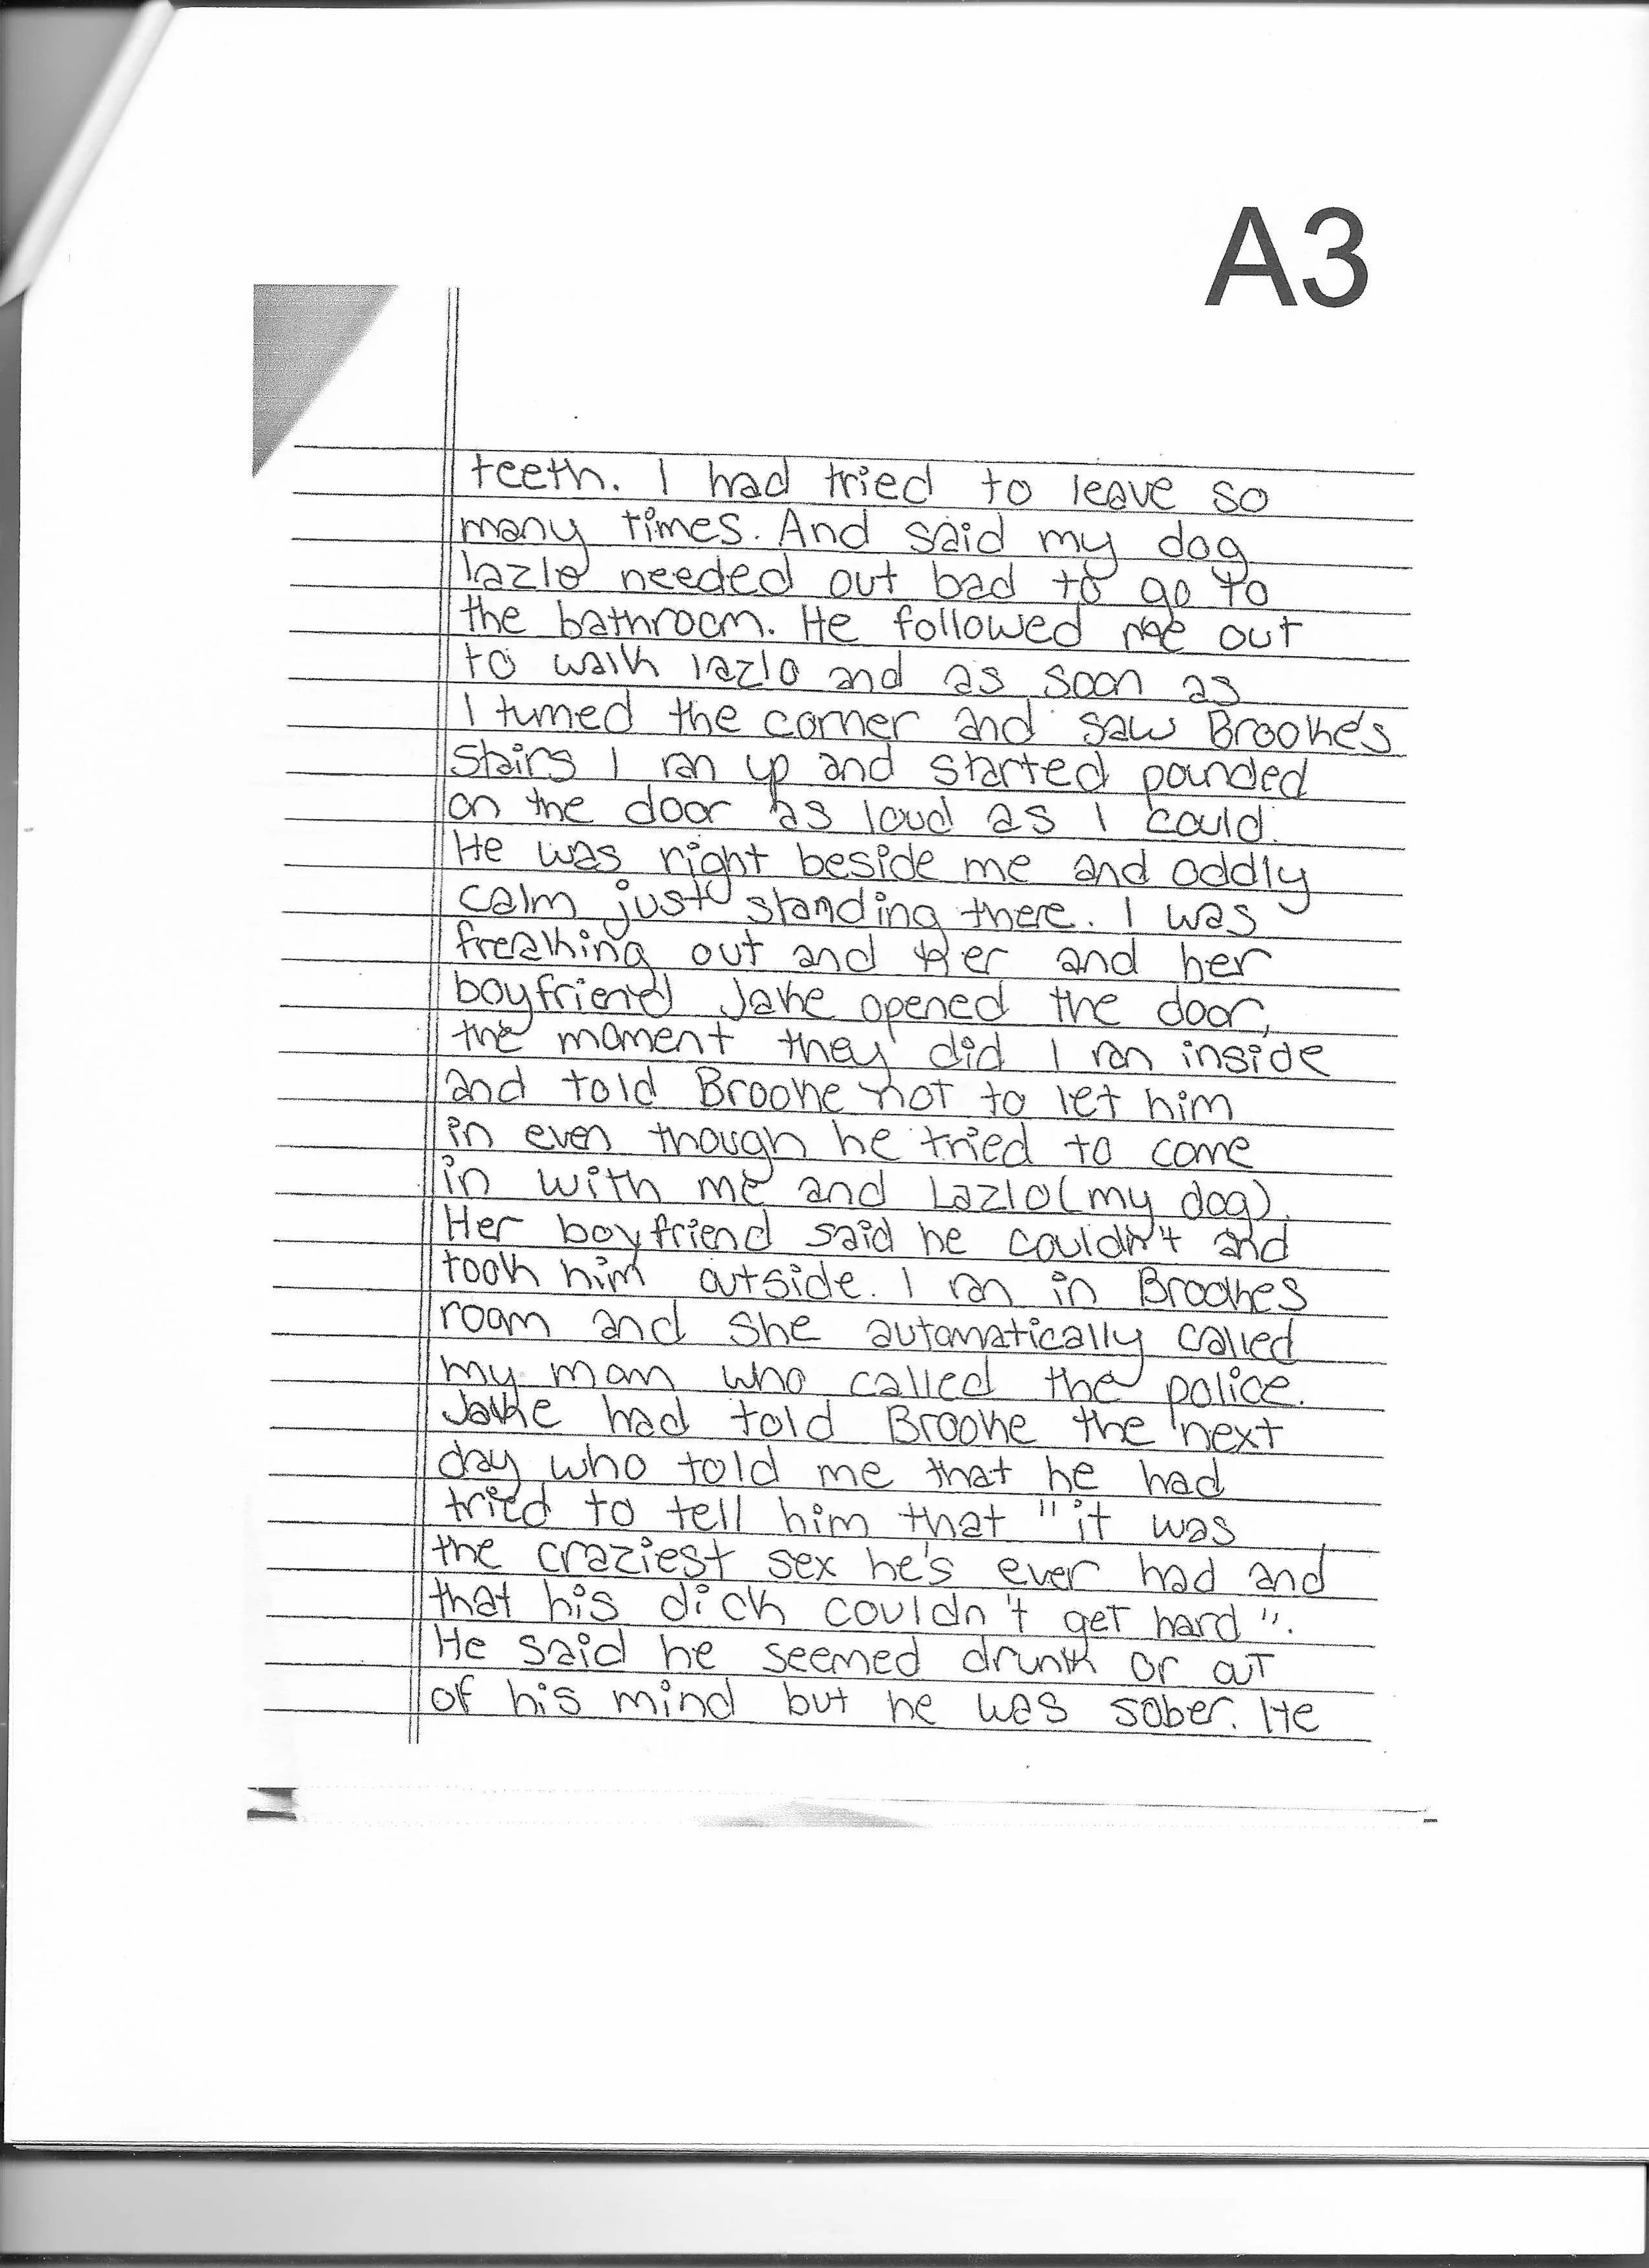 A3
teeth. I had tried to leave so
many times. And said my dog
lazlo needed out bad to go to
the bathroom. He followed me out
to walk lazlo and as soon as
I turned the corner and saw Brooke's
stairs I ran up and started pounded
on the door as loud as I could.
He was right beside me and oddly
calm just standing there. I was
freaking out and her and her
boyfriend Jake opened the door,
the moment they did I ran inside
and told Brooke not to let him
in even though he tried to come
in with me and Lazlo (my dog).
Her boyfriend said he couldn't and
took him outside. I ran in Brookes
room and she automatically called
my mom who called the police.
Jake had told Brooke the next
day who told me that he had
tried to tell him that "it was
the craziest sex he's ever had and
that his dick couldn't get hard".
He said he seemed drunk or out
of his mind but he was sober. He